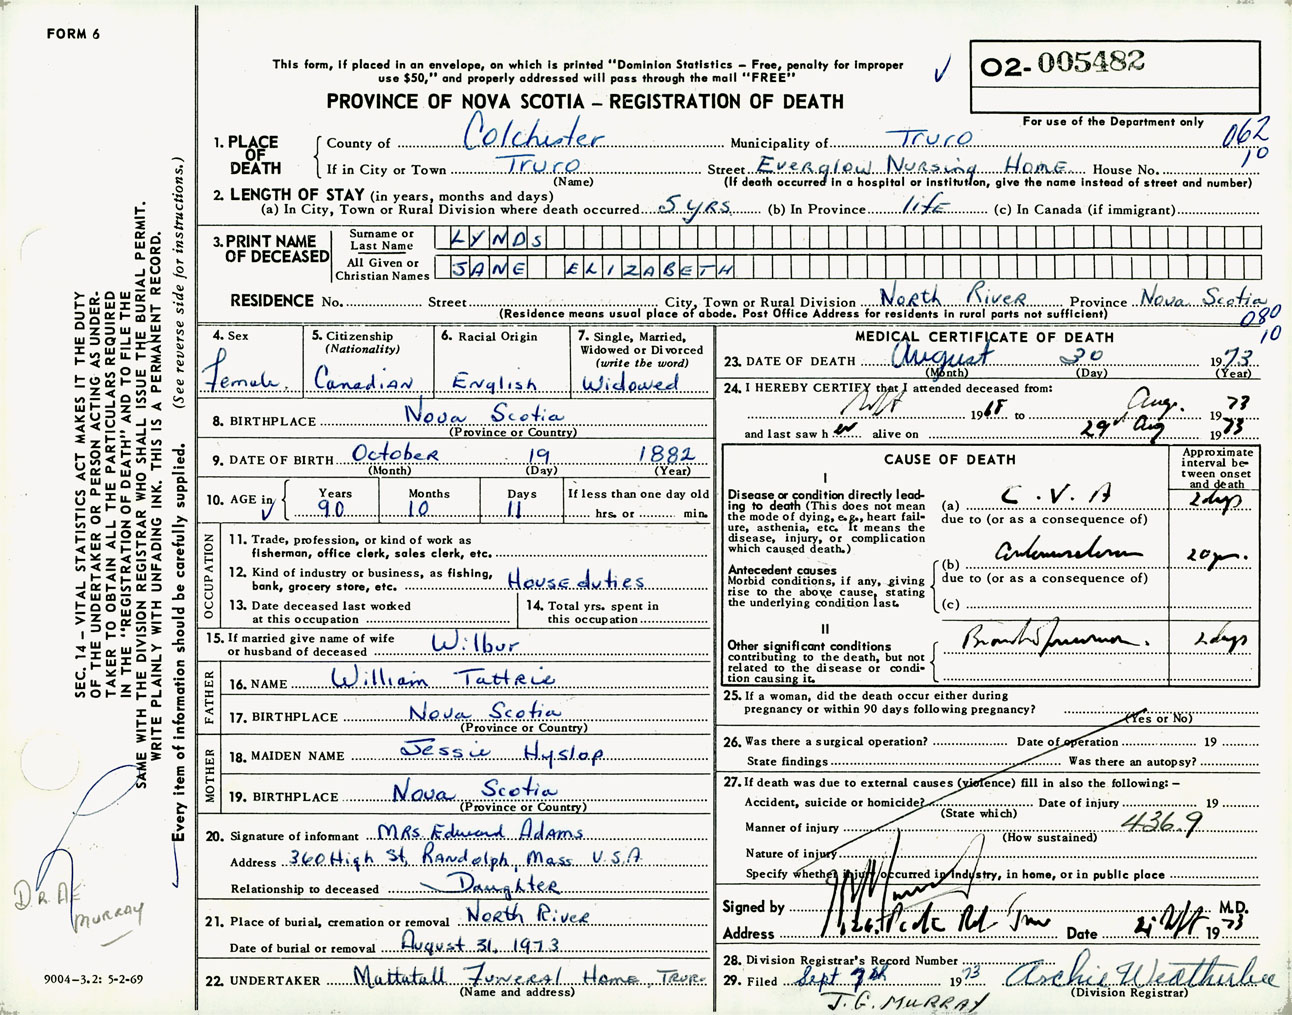 FORM 6
This form, if placed in an envelope, on which is printed "Dominion Statistics – Free, penalty for improper
use $50," and properly addressed will pass through the mail "FREE"
PROVINCE OF NOVA SCOTIA – REGISTRATION OF DEATH
O2-005482
For use of the Department only
062
10
1. PLACE OF DEATH
County of Colchester Municipality of Truro
If in City or Town Truro Street Everglow Nursing Home House No.
(Name) (If death occurred in a hospital or institution, give the name instead of street and number)
2. LENGTH OF STAY (in years, months and days)
(a) In City, Town or Rural Division where death occurred 5 yrs (b) In Province life (c) In Canada (if immigrant)
3. PRINT NAME OF DECEASED
Surname or Last Name LYNDS
All Given or Christian Names JANE ELIZABETH
RESIDENCE No. Street City, Town or Rural Division North River Province Nova Scotia
(Residence means usual place of abode. Post Office Address for residents in rural parts not sufficient)
080
10
4. Sex
Female.
5. Citizenship
(Nationality)
Canadian
6. Racial Origin
English
7. Single, Married,
Widowed or Divorced
(write the word)
Widowed
8. BIRTHPLACE Nova Scotia
(Province or Country)
9. DATE OF BIRTH October 19 1882
(Month) (Day) (Year)
10. AGE in
Years Months Days If less than one day old
90 10 11 hrs. or min.
OCCUPATION
11. Trade, profession, or kind of work as
fisherman, office clerk, sales clerk, etc.
12. Kind of industry or business, as fishing,
bank, grocery store, etc. House duties
13. Date deceased last worked
at this occupation
14. Total yrs. spent in
this occupation
15. If married give name of wife
or husband of deceased Wilbur
FATHER
16. NAME William Tattrie
17. BIRTHPLACE Nova Scotia
(Province or Country)
MOTHER
18. MAIDEN NAME Jessie Hyslop
19. BIRTHPLACE Nova Scotia
(Province or Country)
20. Signature of informant MRS Edward Adams
Address 360 High St, Randolph, Mass U.S.A
Relationship to deceased Daughter
21. Place of burial, cremation or removal North River
Date of burial or removal August 31, 1973
22. UNDERTAKER Mattatall Funeral Home, Truro
(Name and address)
MEDICAL CERTIFICATE OF DEATH
23. DATE OF DEATH August 30 1973
(Month) (Day) (Year)
24. I HEREBY CERTIFY that I attended deceased from:
Sept 1968 to Aug. 1973
and last saw her alive on 29th Aug 1973
CAUSE OF DEATH
Approximate
interval be-
tween onset
and death
I
Disease or condition directly lead-
ing to death (This does not mean
the mode of dying, e.g., heart fail-
ure, asthenia, etc. It means the
disease, injury, or complication
which caused death.)
(a) C.V.A 2 days
due to (or as a consequence of)
Antecedent causes
Morbid conditions, if any, giving
rise to the above cause, stating
the underlying condition last.
(b) 20 yrs.
due to (or as a consequence of)
(c)
II
Other significant conditions
contributing to the death, but not
related to the disease or condi-
tion causing it.
2 days
25. If a woman, did the death occur either during
pregnancy or within 90 days following pregnancy?
(Yes or No)
26. Was there a surgical operation? Date of operation 19
State findings Was there an autopsy?
27. If death was due to external causes (violence) fill in also the following: –
Accident, suicide or homicide? Date of injury 19
(State which)
Manner of injury 436.9
(How sustained)
Nature of injury
Specify whether injury occurred in industry, in home, or in public place
Signed by M.D.
Address Rd Date Sept 1973
28. Division Registrar's Record Number
29. Filed Sept 9th 1973 Archie Weatherbee
(Division Registrar)
J. G. MURRAY
SEC. 14 – VITAL STATISTICS ACT MAKES IT THE DUTY
OF THE UNDERTAKER OR PERSON ACTING AS UNDER-
TAKER TO OBTAIN ALL THE PARTICULARS REQUIRED
IN THE "REGISTRATION OF DEATH" AND TO FILE THE
SAME WITH THE DIVISION REGISTRAR WHO SHALL ISSUE THE BURIAL PERMIT.
WRITE PLAINLY WITH UNFADING INK. THIS IS A PERMANENT RECORD.
Every item of information should be carefully supplied. (See reverse side for instructions.)
DR AE
MURRAY
9004-3.2: 5-2-69